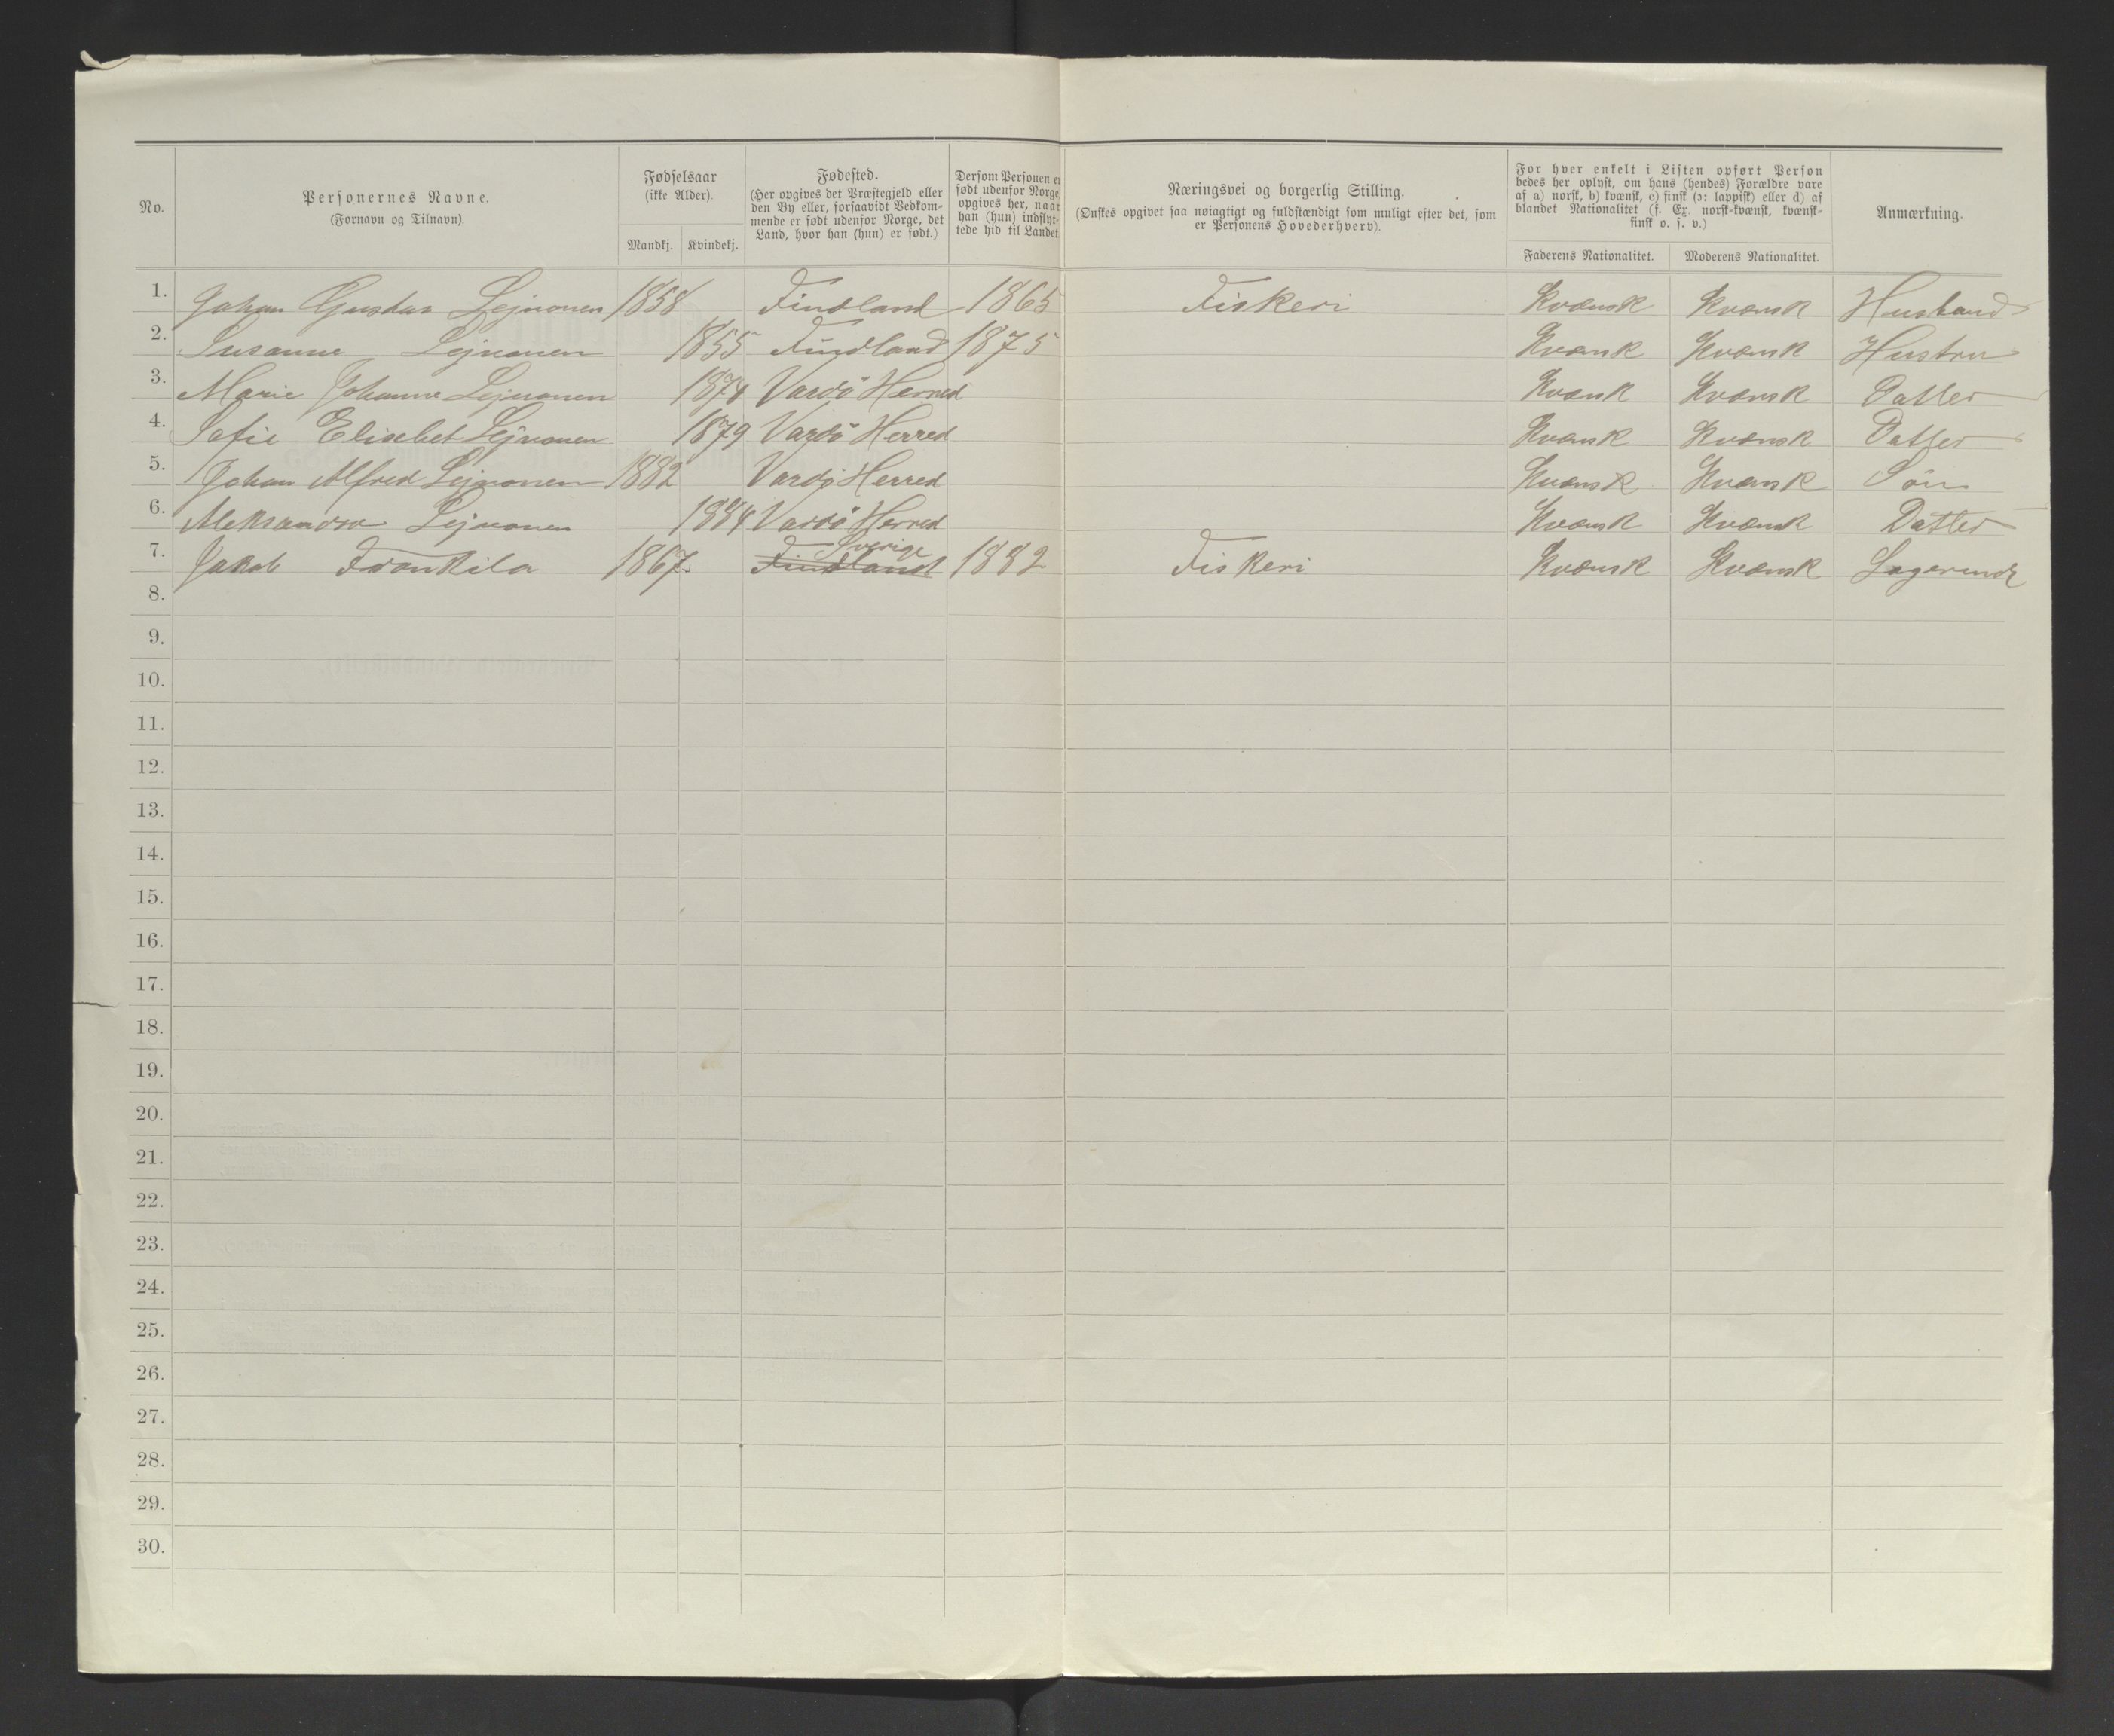 No.
Personernes Navne.
(Fornavn og Tilnavn).
Fødselsaar
(ikke Alder).
Mandkj.
Kvindekj.
Fødested.
(Her opgives det Præstegjeld eller
den By eller, forsaavidt Vedkom-
mende er født udenfor Norge, det
Land, hvor han (hun) er født.)
Dersom Personen er
født udenfor Norge,
opgives her, naar
han (hun) indflyt-
tede hid til Landet.
Næringsvei og borgerlig Stilling.
(Ønskes opgivet saa nøiagtigt og fuldstændigt som muligt efter det, som
er Personens Hovederhverv).
For hver enkelt i Listen opført Person
bedes her oplyst, om hans (hendes) Forældre vare
af a) norsk, b) kvænsk, c) finsk (ɔ: lappisk) eller d) af
blandet Nationalitet (f. Ex. norsk-kvænsk, kvænsk-
finsk o. s. v.)
Faderens Nationalitet.
Moderens Nationalitet.
Anmærkning.
1. Johan Gustav Lejnonen 1858 Findland 1865 Fiskeri Kvænsk Kvænsk Husband
2. Susanne Lejnonen 1855 Findland 1875 Kvænk Kvænsk Hustru
3. Marie Johanne Lejnonen 1874 Vardö Herred Kvænk Kvænsk Datter
4. Sofie Elisebet Lejnonen 1879 Vardö Herred Kvænk Kvænsk Datter
5. Johan Alfred Lejnonen 1882 Vardö Herred Kvænsk Kvænsk Sön
6. Aleksandra Lejnonen 1884 Vardö Herred Kvænsk Kvænsk Datter
Sverige
7. Jakob Frankila 1867. Findland 1882 Fiskeri Kvænsk Kvænsk Logerende
8.
9.
10.
11.
12.
13.
14.
15.
16.
17.
18.
19.
20.
21.
22.
23.
24.
25.
26.
27.
28.
29.
30.